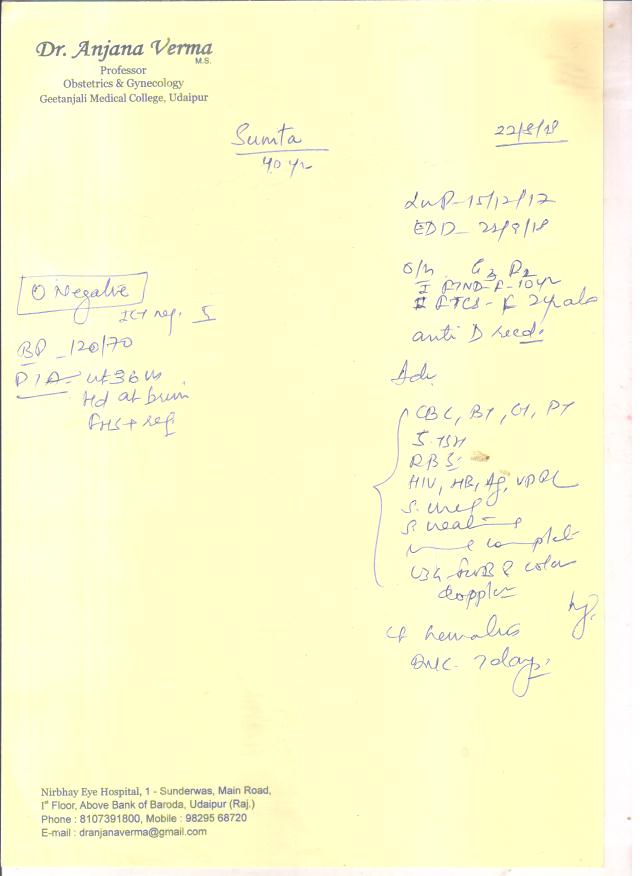 Dr. Anjana Verma
M.S.
Professor
Obstetrics & Gynecology
Geetanjali Medical College, Udaipur
22/8/18
40 yr
LMP - 15/12/17
EDD - 22/9/18
O/H G3 P2
I FTND - F - 10 yr
II FTCS - F
anti D
O Negative
ICT neg.
BP - 120/70
P/A - ut 36 w
Hd at brim
FHS + reg
Adv
CBC, BT, CT, PT
S. TSH
RBS
HIV, HB, Ag, VDRL
S. urea
complete
USG - FWB & color
doppler
7 days
Nirbhay Eye Hospital, 1 - Sunderwas, Main Road,
Ist Floor, Above Bank of Baroda, Udaipur (Raj.)
Phone : 8107391800, Mobile : 98295 68720
E-mail : dranjanaverma@gmail.com